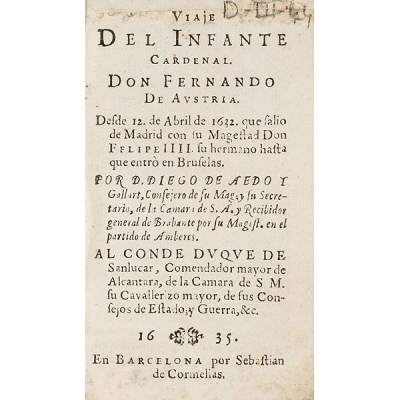 D-III-64
VIAJE
DEL INFANTE
CARDENAL.
DON FERNANDO
DE AVSTRIA.
Desde 12. de Abril de 1632. que salio
de Madrid con su Magestad Don
FELIPE IIII. su hermano hasta
que entrò en Bruselas.
POR D. DIEGO DE AEDO Y
Gallart, Consejero de su Mag. y su Secre-
tario, de la Camara de S. A. y Recibidor
general de Brabante por su Magest. en el
partido de Amberes.
AL CONDE DVQVE DE
Sanlucar, Comendador mayor de
Alcantara, de la Camara de S M.
su Cavallerizo mayor, de sus Con-
sejos de Estado, y Guerra, &c.
16 35.
En BARCELONA por Sebastian
de Cormellas.